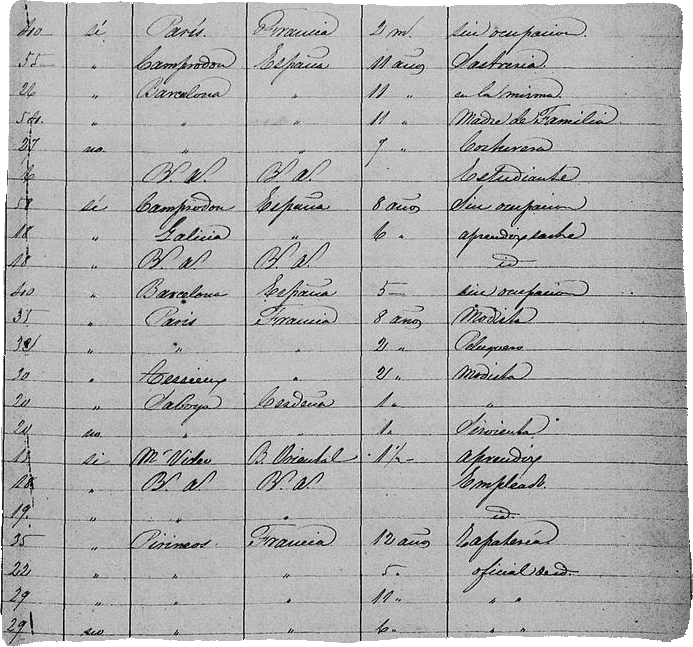 40 sí París. Francia 2 m. sin ocupacion.
55 " Camprodon España 11 años Sastreria
22 " Barcelona " 11 " en la misma
54. " " " 11 " Madre de Familia
27 no " " 7 " Costurera
B. A. B. A. Estudiante
58 sí Camprodon España 8 años Sin ocupacion
18 " Galicia " 6 " aprendiz sastre
18 " B. A. B. A. id
40 " Barcelona España 5 — sin ocupacion
35 " París Francia 8 años Modista
" " " 2 " Peluquero
30 " " 2 " Modista
20 " Saboya Cerdeña 1 " "
20 no " 1 " Sirvienta
si Mte Video B. Oriental 1½ — aprendiz
18 " B. A. B. A. Empleado.
19 " " " id.
35 " Pirineos. Francia 12 años Zapatería
22 " " " 5 " oficial de id.
29 " " " 11 " " "
29 no " " 6 " " "